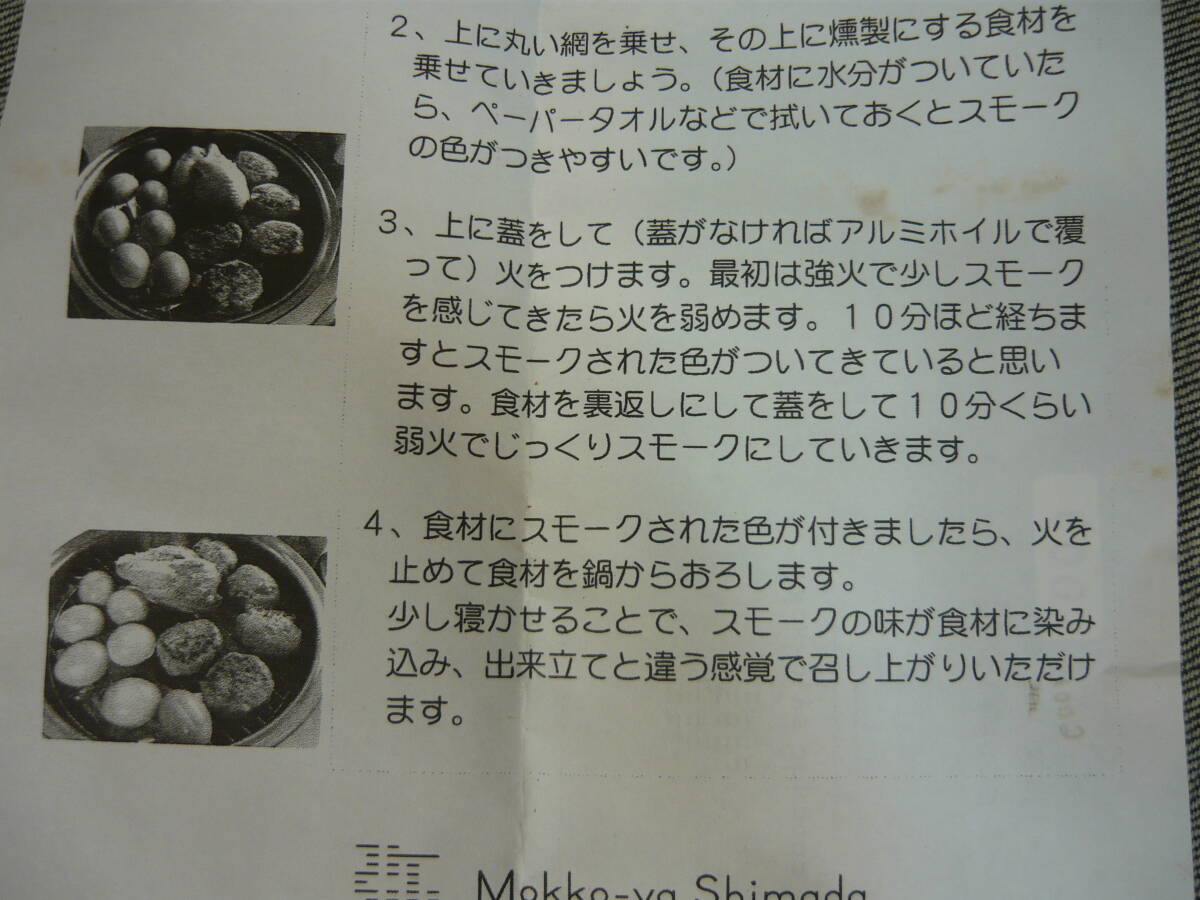 2、上に丸い網を乗せ、その上に燻製にする食材を
乗せていきましょう。（食材に水分がついていた
ら、ペーパータオルなどで拭いておくとスモーク
の色がつきやすいです。）
3、上に蓋をして（蓋がなければアルミホイルで覆
って）火をつけます。最初は強火で少しスモーク
を感じてきたら火を弱めます。１０分ほど経ちま
すとスモークされた色がついてきていると思い
ます。食材を裏返しにして蓋をして１０分くらい
弱火でじっくりスモークにしていきます。
4、食材にスモークされた色が付きましたら、火を
止めて食材を鍋からおろします。
少し寝かせることで、スモークの味が食材に染み
込み、出来立てと違う感覚で召し上がりいただけ
ます。
Mokko-ya Shimada